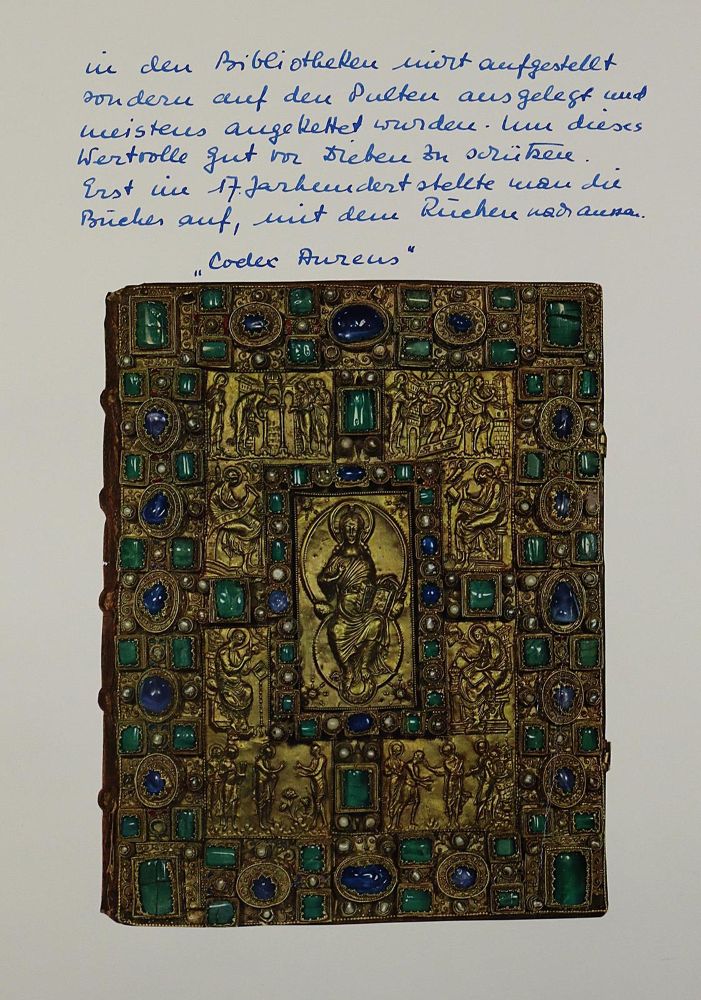 in den Bibliotheken nicht aufgestellt
sondern auf den Pulten ausgelegt und
meistens angekettet wurden. Um dieses
Wertvolle Gut vor Dieben zu schützen.
Erst im 17. Jarhundert stellte man die
Bücher auf, mit dem Rücken nach aussen.
„Codex Aureus"